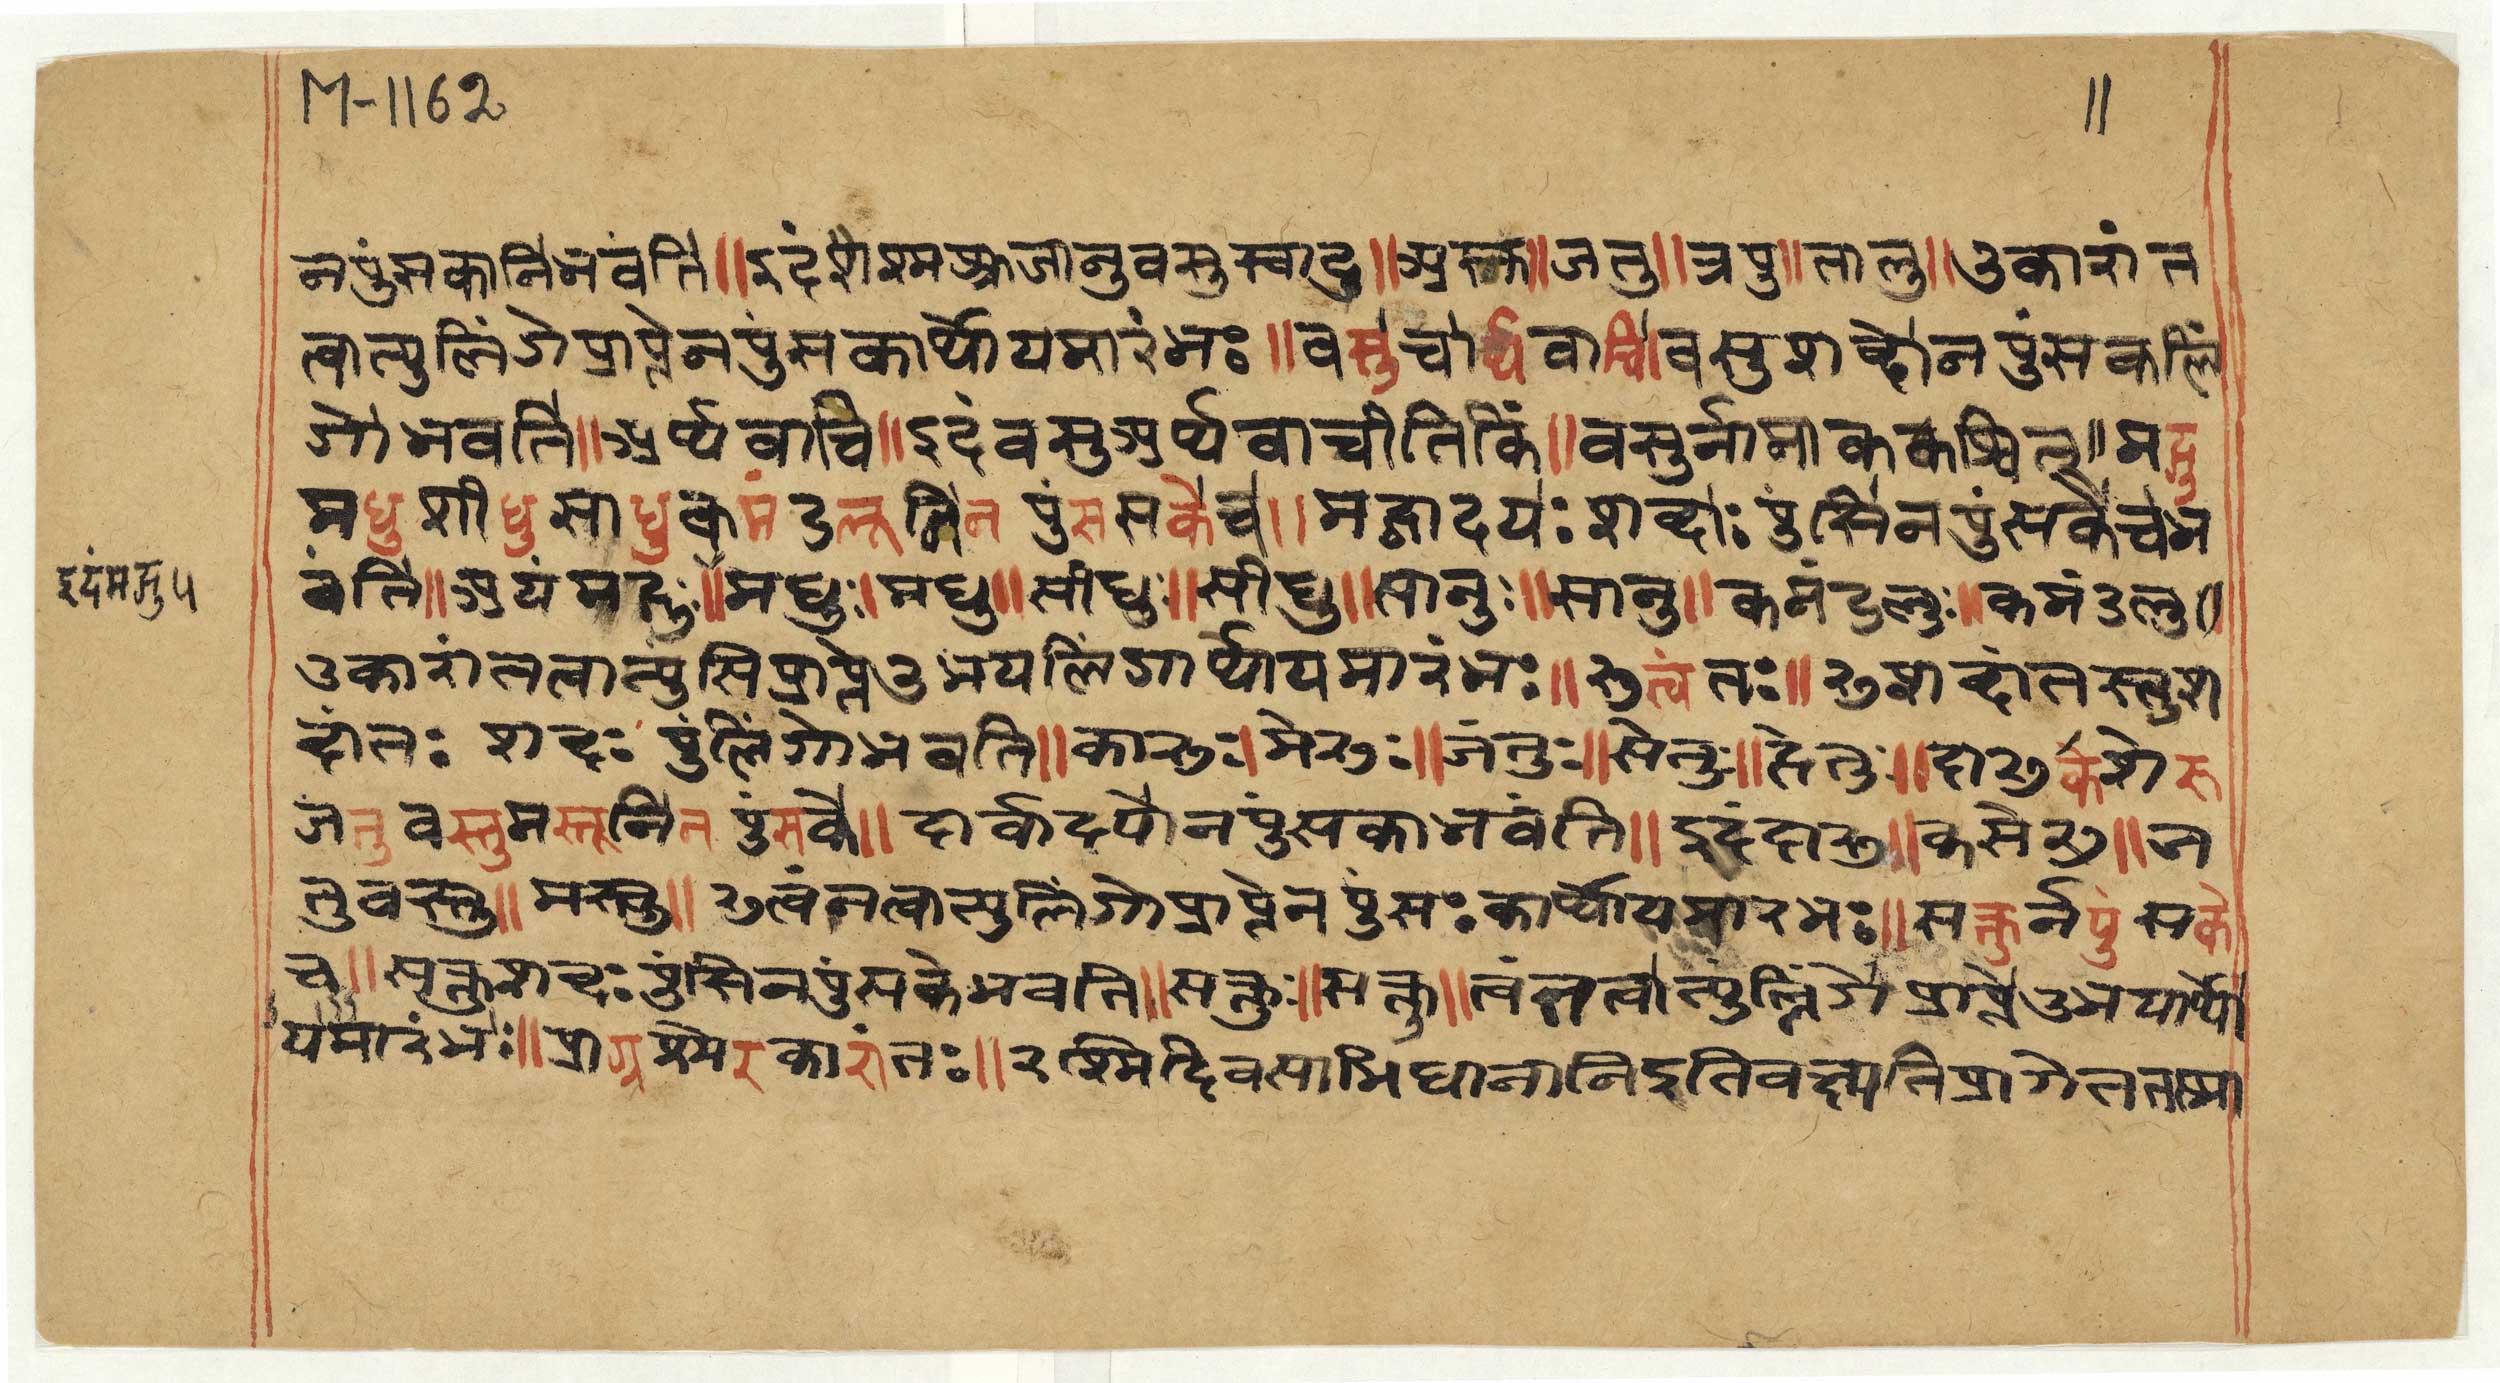 M-1162
॥
नपुंसकानिभवंति॥इदंश्मश्रुजानुवसुस्वादु॥अस्रु॥जतु॥त्रपु॥तालु॥उकारांत
त्वात्पुलिंगेप्राप्तेनपुंसकार्थोयमारंभः॥वसुचार्थवाचि।वसुशब्दोनपुंसकलिं
गोभवति॥अर्थवाचि॥इदंवसुअर्थवाचीतिकिं॥वसुर्नामाककश्चित्॥मद्गु
मधुशीधुसाधुकमंडलूनिनपुंससकेच॥मद्ग्वादयःशब्दाःपुंसिनपुंसकेचभ
वंति॥अयंमद्गुः॥मधुः।मधु॥सीधुः॥सीधु॥सानुः॥सानु॥कमंडलुः॥कमंडलु॥
इदंमद्गु५
उकारांतत्वात्पुंसिप्राप्तेउभयलिंगार्थोयमारंभः॥रुत्वंतः॥रुशब्दांतस्तुश
ब्दांतः शब्दः पुंलिंगोभवति॥कारुः।मेरुः॥जंतुः॥सेतुः॥हेतुः॥दारुकशेरू
जतुवस्तुमस्तूनिनपुंसके॥दार्वादयोनपुंसकाभवंति॥इदंदारु॥कसेरु॥ज
तुवस्तु॥मस्तु॥रुत्वंतत्वात्पुलिंगोप्राप्तेनपुंसःकार्थोयमारभः॥सक्तुर्नपुंसके
च॥सक्तुशब्दःपुंसिनपुंसकेभवति॥सक्तुः॥सक्तु॥त्वंतत्वात्पुंल्लिंगेप्राप्तेउभयार्थो
यमारंभः॥प्राग्रश्मेरकारांतः॥रश्मिदिवसाभिधानानिइतिवक्ष्यतिप्रागेतत्तस्मा